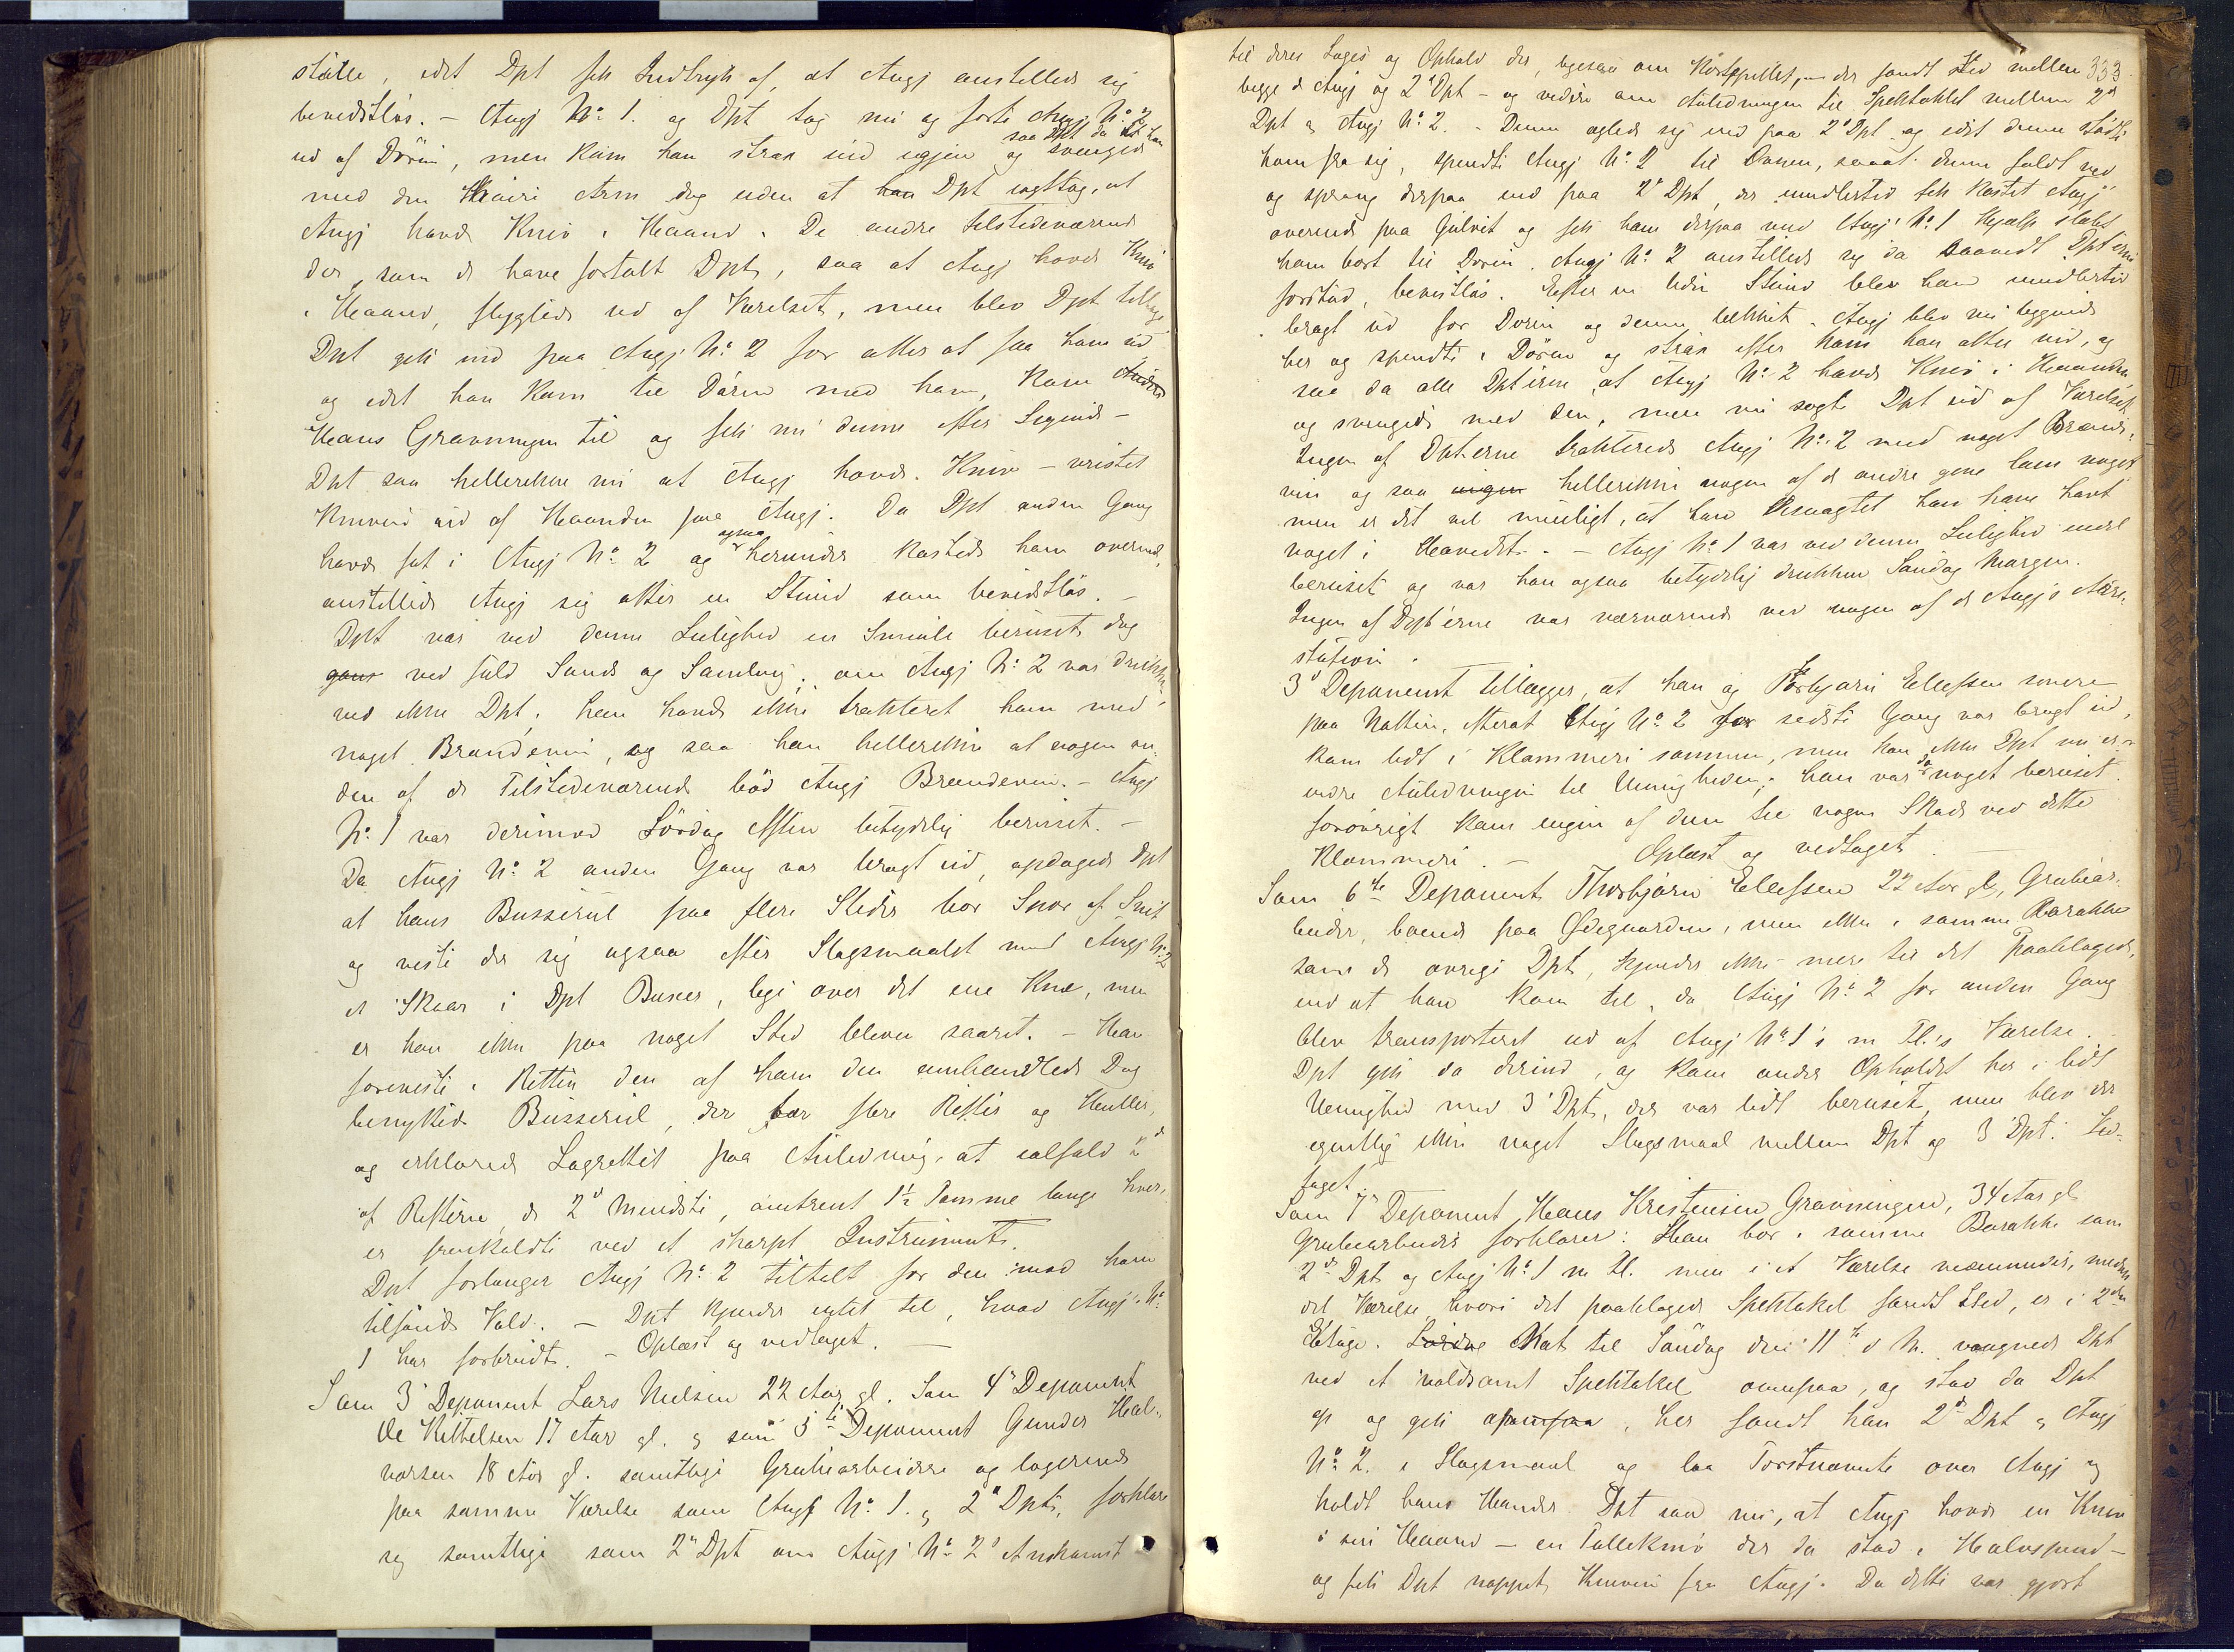 stille, idet Dpt fik Indtryk af, at Angj anstillede sig
bevidstløs. – Angj No: 1. og Dpt tog nu og førte Angj. No: 2
ud af Døren, men kom han strax ind igjen og svingede
med den höire Arm dog uden at han Dpt iagttog, at
Angj havde Kniv i Haand. De andre Tilstedeværende
der, som de have fortalt Dpt, saa at Angj havde Kniv
i Haand, flygtede ud af Værelset, men blev Dpt tilbage
Dpt gik ind paa Angj. No: 2 for atter at faa ham ud
og idet han kom til Døren med ham, kom
Hans Gravningen til og fik nu denne efter Sigende –
Dpt saa hellerikke nu at Angj havde Kniv – vristet
Kniven ud af Haanden paa Angj. Da Dpt anden Gang
havde fat i Angj No: 2 og ogsaa herunder kastede ham overende,
anstillede Angj sig atter en Stund som bevidstløs. –
Dpt var ved denne Leilighed en Smule beruset, dog
ganske ved fuld Sands og Samling; om Angj No: 2 var drukken,
ved ikke Dpt. han havde ikke trakteret ham med
noget Brændeviin, og saa han hellerikke at nogen an-
den af de Tilstedeværende bød Angj Brændevin. – Angj
No: 1 var derimod Lördag Aften betydelig beruset. –
Da Angj No: 2 anden Gang var bragt ud, opdagede Dpt
at hans Busserul paa flere Steder bar Spor af Snit
og viste der sig ogsaa efter Slagsmaalet med Angj No: 2
et Skaar i Dpt Buxer, lige over det ene Knæ, men
er han ikke paa noget Sted bleven saaret. – Han
foreviste i Retten den af ham den omhandlede Dag
benyttede Busserul, der bar flere Rifter og Huller,
og erklærede Lagrettet paa Anledning, at ialfald 2de
af Rifterne, de 2de mindste, omtrent 1½ Tomme lange hver,
er fremkaldte ved et skarpt Instrument.
Dpt forlanger Angj No: 2 tiltalt for den imod ham
tilføiede Vold. – Dpt kjender intet til, hvad Angj. No:
1 har forbrudt. – Oplæst og vedtaget. –
Som 3' Deponent Lars Nielsen 22 Aar gl. Som 4' Deponent
Ole Kittelsen 17 Aar gl. og som 5te Deponent Gunder Hal-
vorsen 18 Aar gl. samtlige Grubearbeidere og logerende
paa samme Værelse som Angj No: 1. og 2' Dpt, forklare
sig samtlige som 2' Dpt om Angj No: 2' Ankomst
333
til deres Logis og Ophold der, ligesaa om Kortspillet, der fandt Sted mellem
begge de Angj og 2' Dpt – og videre om Anledningen til Spektaklet mellem 2'
Dpt og Angj No: 2. – Denne eglede sig ind paa 2' Dpt og idet denne stødte
ham fra sig, spendte Angj No: 2 til Ovnen, saaat denne faldt ned
og sprang derpaa ind paa 2' Dpt, der imidlertid fik kastet Angj
overende paa Gulvet og fik ham derpaa med Angj No: 1 Hjælp slæbt
ham bort til Døren. Angj No: 2 anstillede sig da saavidt Dpt'erne
forstod, bevistløs. Efter en liden Stund blev han imidlertid
bragt ud for Døren og denne lukket. Angj blev nu liggende
her og spendte i Døren og strax efter kom han atter ind, og
saa da alle Dpt'erne, at Angj No: 2 havde Kniv i Haanden
og svingede med den, men nu søgte Dpt ud af Værelset.
Ingen af Dpt.erne trakterede Angj No: 2 med noget Brænde-
vin og saa ingen hellerikke nogen af de andre give ham noget
men er det vel muligt, at han desuagtet kan have havt
noget i Hovedet. – Angj No: 1 var ved denne Leilighed endel
beruset og var han ogsaa betydelig drukken Søndag Morgen.
Ingen af Dpt'erne var nærværende ved nogen af de Angj's Arre-
station.
3' Deponent tillægger, at han og Torbjørn Ellefsen senere
paa Natten, efterat Angj No: 2 for sidste Gang var bragt ud,
kom lidt i Klammeri sammen, men kan ikke Dpt nu er-
indre Anledningen til Uenigheden; han var da noget beruset.
forøvrigt kom ingen af dem til nogen Skade ved dette
Klammeri. – Oplæst og vedtaget. –
Som 6te Deponent Thorbjørn Ellefsen 22 Aar gl., Grubear-
beider, boende paa Ødegaarden, men ikke i samme Barakke
som de øvrige Dpt, kjender ikke mere til det Paaklagede,
end at han kom til, da Angj No: 2 for anden Gang
blev transporteret ud af Angj No: 1's m Fl.'s Værelse.
Dpt gik da derind, og kom under Opholdet her i lidt
Uenighed med 3' Dpt, der var lidt beruset, men blev der
egentlig ikke noget Slagsmaal mellem Dpt og 3' Dpt. Ved-
taget.
Som 7de Deponent Hans Kristensen Gravningen, 34 Aar gl
Grubearbeider forklarer: Han bor i samme Barakke som
2' Dpt og Angj No: 1 m Fl. men i et Værelse nedenunder, medens
det Værelse, hvori det paaklagede Spektakel fandt Sted, er i 2den
Etage. Lördag Nat til Søndag den 11te d M. vaagnede Dpt
ved et voldsomt Spektakel ovenpaa, og stod da Dpt
op og gik ovenpaa, her fandt han 2' Dpt og Angj
No: 2. i Slagsmaal og laa Førstnævnte over Angj og
holdt hans Hænder. Dpt saa nu, at Angj havde en Kniv
i sin Haand – en Tollekniv der da stod i Halvspend –
og fik Dpt nappet Kniven fra Angj. Da dette var gjort